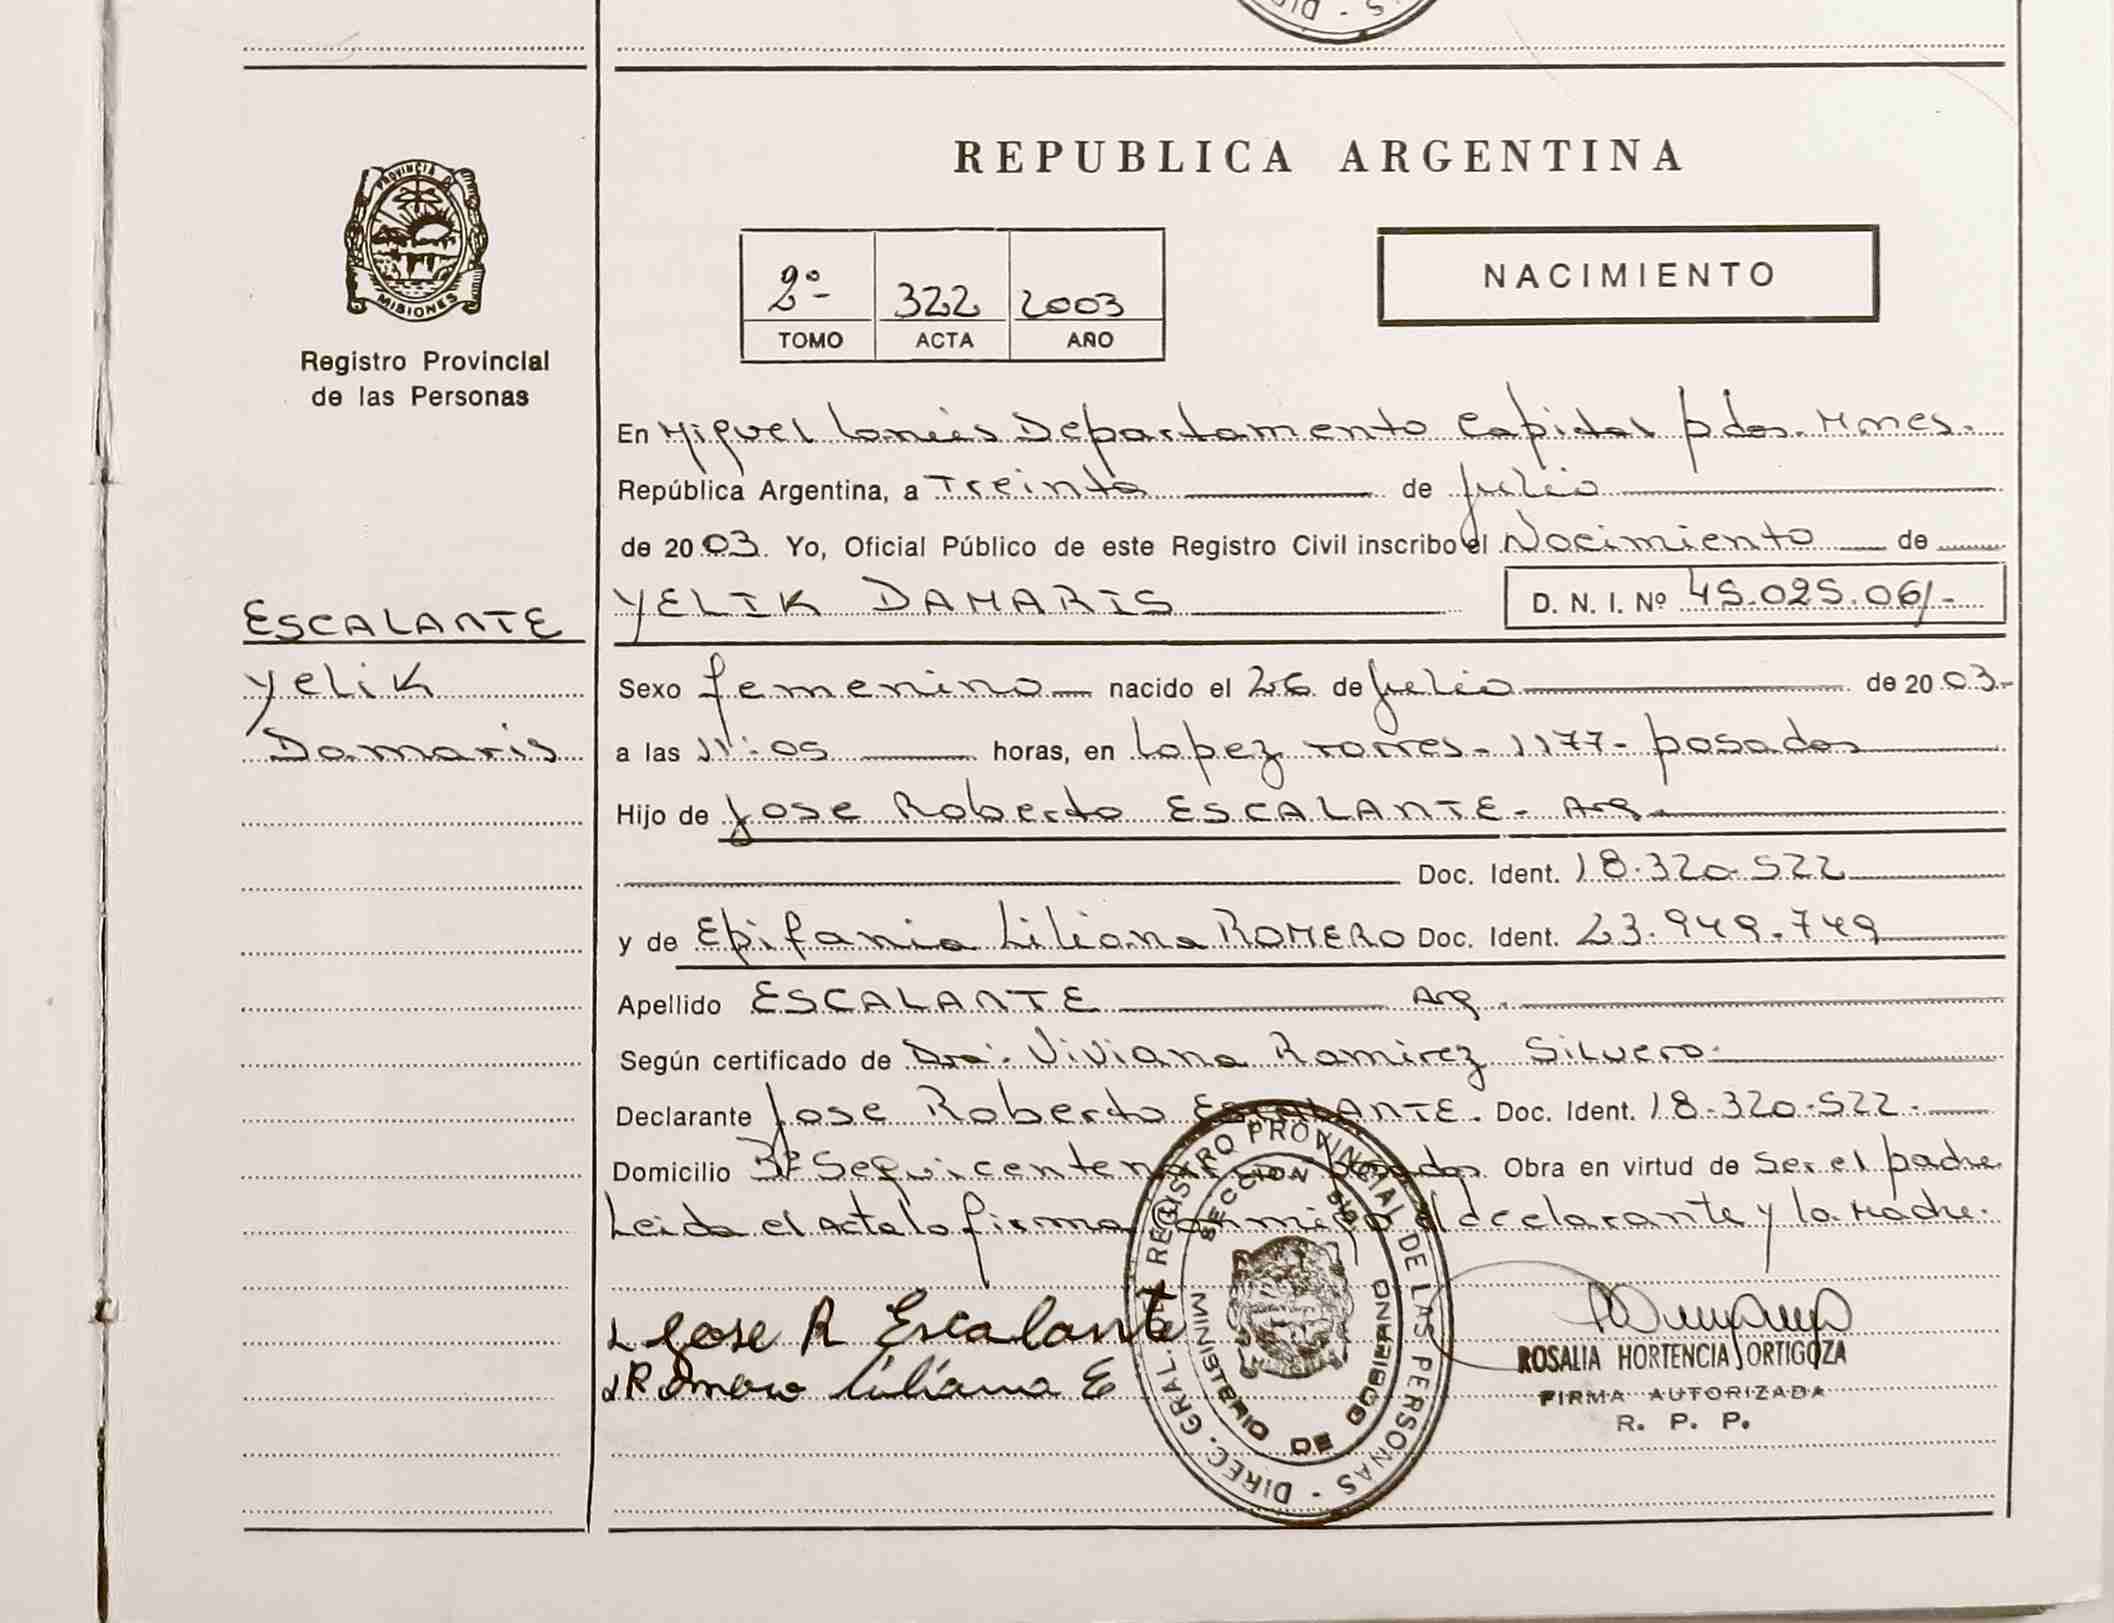 DIREC
S
REPUBLICA ARGENTINA
PROVINCIA DE
MISIONES
Registro Provincial
de las Personas
2º
322
2003
TOMO
ACTA
AÑO
NACIMIENTO
En Miguel Lanús Departamento Capital Pdas. Mnes.
República Argentina, a Treinta de Julio
de 2003. Yo, Oficial Público de este Registro Civil inscribo el Nacimiento de
YELIK DAMARIS D. N. I. Nº 45.025.061-
ESCALANTE
Yelik
Damaris
Sexo femenino nacido el 26 de Julio de 2003-
a las 11:05 horas, en Lopez Torres - 1177 - Posadas
Hijo de Jose Roberto ESCALANTE - Arg.
Doc. Ident. 18.320.522
y de Epifania Liliana ROMERO Doc. Ident. 23.949.749
Apellido ESCALANTE Arg.
Según certificado de Dra. Viviana Ramirez Silvero.
Declarante Jose Roberto ESCALANTE. Doc. Ident. 18.320.522.
Domicilio Bº Sequicentenario Posadas. Obra en virtud de Ser el padre
Leida el Acta lo firma conmigo el declarante y la Madre.
Jose R Escalante
Romero Liliana E
DIREC. GRAL. REGISTRO PROVINCIAL DE LAS PERSONAS
SECCION
MINISTERIO DE GOBIERNO
ROSALIA HORTENCIA ORTIGOZA
FIRMA AUTORIZADA
R. P. P.